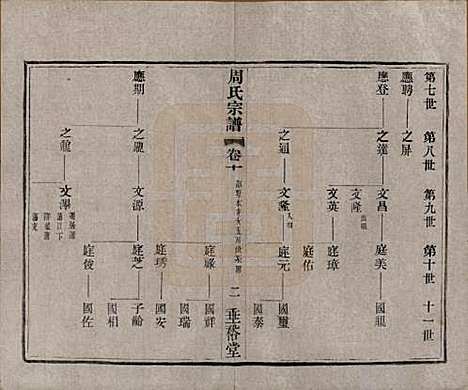 第七世 第八世 第九世 第十世 十一世
應聘 之屏
應登 之達 文昌 庭美 國龍
文隆 出繼
文英 庭璋
庭佑
之通 文隆 入繼 庭元 國璽
國泰
周氏宗譜 卷十 二 垂裕堂
庭祿 國祥
國瑞
庭琇 國安
應期 之龍 文源 庭芝 子齡
國相
之龍 文翠 庭俊 國佐